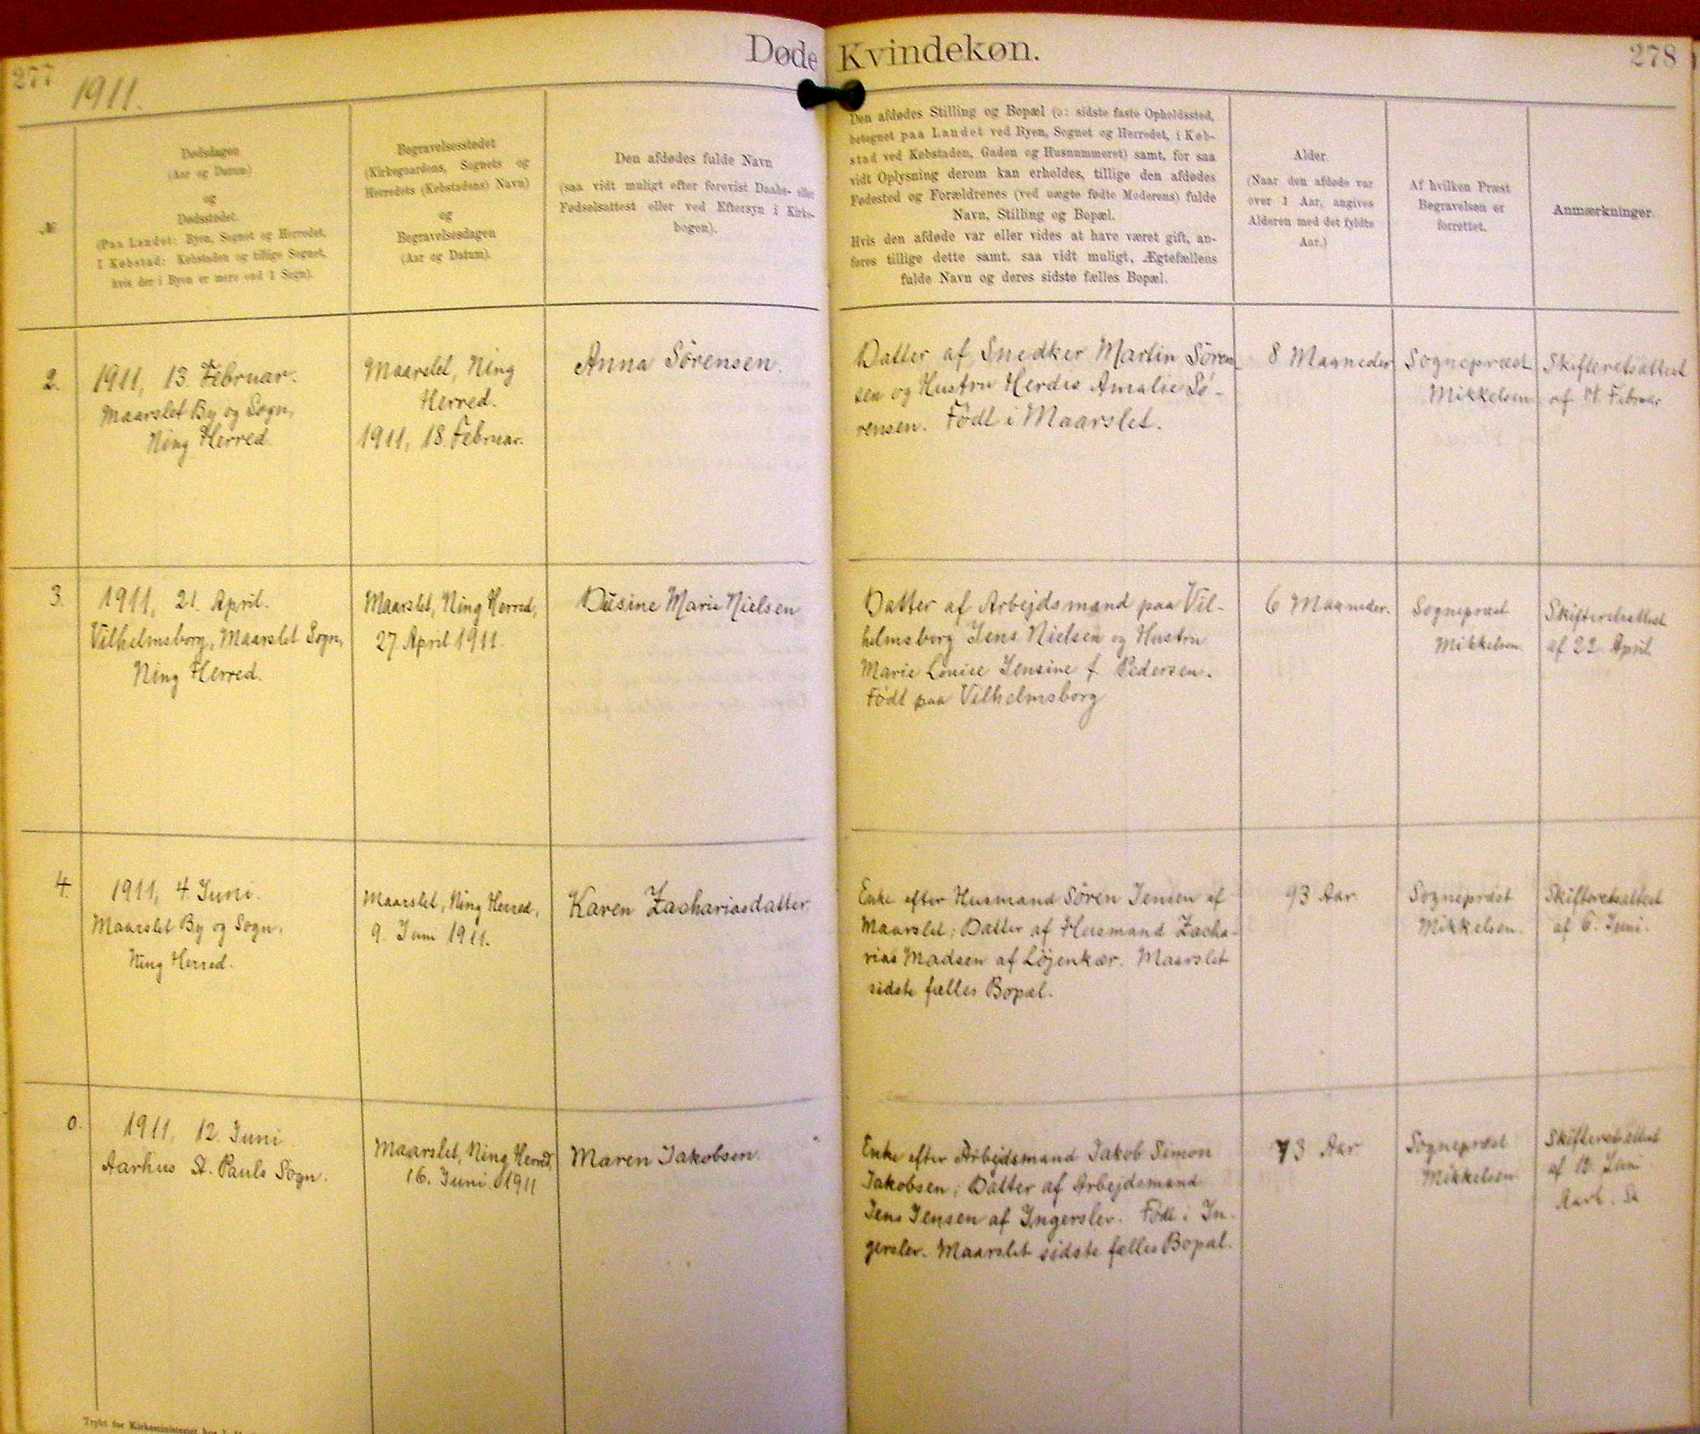 277
1911.
Døde
Kvindekøn.
278
№
Dødsdagen
(Aar og Datum)
og
Dødsstedet.
(Paa Landet: Byen, Sognet og Herredet,
I Købstad: Købstaden og tillige Sognet,
hvis der i Byen er mere end 1 Sogn).
Begravelsesstedet
(Kirkegaardens, Sognets og
Herredets (Købstadens) Navn)
og
Begravelsesdagen
(Aar og Datum).
Den afdødes fulde Navn
(saa vidt muligt efter forevist Daabs- eller
Fødselsattest eller ved Eftersyn i Kirke-
bogen).
Den afdødes Stilling og Bopæl (ɔ: sidste faste Opholdssted,
betegnet paa Landet ved Byen, Sognet og Herredet, i Køb-
stad ved Købstaden, Gaden og Husnummeret) samt, for saa
vidt Oplysning derom kan erholdes, tillige den afdødes
Fødested og Forældrenes (ved uægte fødte Moderens) fulde
Navn, Stilling og Bopæl.
Hvis den afdøde var eller vides at have været gift, an-
føres tillige dette samt, saa vidt muligt, Ægtefællens
fulde Navn og deres sidste fælles Bopæl.
Alder.
(Naar den afdøde var
over 1 Aar, angives
Alderen med det fyldte
Aar.)
Af hvilken Præst
Begravelsen er
forrettet.
Anmærkninger.
2.
1911, 13. Februar.
Maarslet By og Sogn,
Ning Herred.
Maarslet, Ning
Herred.
1911, 18. Februar.
Anna Sörensen.
Datter af Snedker Martin Sören-
sen og Hustru Herdis Amalie Sö-
rensen. Födt i Maarslet.
8 Maaneder
Sognepræst
Mikkelsen
Skifteretsattest
af 14. Februar
3.
1911, 21. April.
Vilhelmsborg, Maarslet Sogn,
Ning Herred.
Maarslet, Ning Herred,
27. April 1911.
Dusine Marie Nielsen
Datter af Arbejdsmand paa Vil-
helmsborg Jens Nielsen og Hustru
Marie Louise Jensine f. Pedersen.
Födt paa Vilhelmsborg
6 Maaneder.
Sognepræst
Mikkelsen.
Skifteretsattest
af 22. April
4.
1911, 4. Juni.
Maarslet By og Sogn,
Ning Herred.
Maarslet, Ning Herred,
9. Juni 1911.
Karen Zachariasdatter.
Enke efter Husmand Sören Jensen af
Maarslet; Datter af Husmand Zacha-
rias Madsen af Löjenkær. Maarslet
sidste fælles Bopæl.
93 Aar.
Sognepræst
Mikkelsen.
Skifteretsattest
af 6. Juni.
0.
1911, 12. Juni
Aarhus St. Pauls Sogn.
Maarslet, Ning Herred,
16. Juni 1911
Maren Jakobsen.
Enke efter Arbejdsmand Jakob Simon
Jakobsen; Datter af Arbejdsmand
Jens Jensen af Ingerslev. Födt i In-
gerslev. Maarslet sidste fælles Bopæl.
73 Aar
Sognepræst
Mikkelsen
Skifteretsattest
af 13. Juni
Trykt for Kirkeministeriet hos